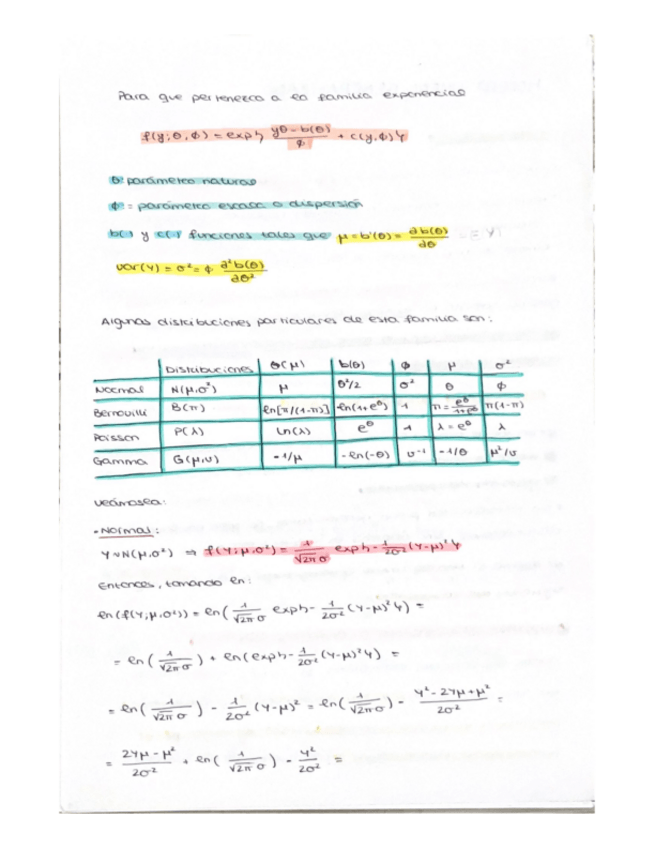 Para que pertenezca a la familia exponencial
f(y;θ,ϕ) = exp{ (yθ - b(θ))/ϕ + c(y,ϕ) }
θ: parámetro natural
ϕ = parámetro escala o dispersión
b(·) y c(·) funciones tales que μ = b'(θ) = ∂b(θ)/∂θ
var(Y) = σ² = ϕ ∂²b(θ)/∂θ²
Algunas distribuciones particulares de esta familia son:
Distribuciones θ(μ) b(θ) ϕ μ σ²
Normal N(μ,σ²) μ θ²/2 σ² θ ϕ
Bernouilli B(π) ln[π/(1-π)] ln(1+e^θ) 1 π = e^θ/(1+e^θ) π(1-π)
Poisson P(λ) Ln(λ) e^θ 1 λ = e^θ λ
Gamma G(μ,υ) -1/μ -ln(-θ) υ⁻¹ -1/θ μ²/υ
Veámosla:
- Normal:
Y ~ N(μ,σ²) ⇒ f(Y;μ,σ²) = 1/(√2π σ) exp{ - 1/2σ² (Y-μ)² }
Entonces, tomando ln:
ln(f(Y;μ,σ²)) = ln( 1/(√2π σ) exp{ - 1/2σ² (Y-μ)² } ) =
= ln( 1/(√2π σ) ) + ln( exp{ - 1/2σ² (Y-μ)² } ) =
= ln( 1/(√2π σ) ) - 1/2σ² (Y-μ)² = ln( 1/(√2π σ) ) - (Y² - 2Yμ + μ²)/2σ² =
= (2Yμ - μ²)/2σ² + ln( 1/(√2π σ) ) - Y²/2σ² =